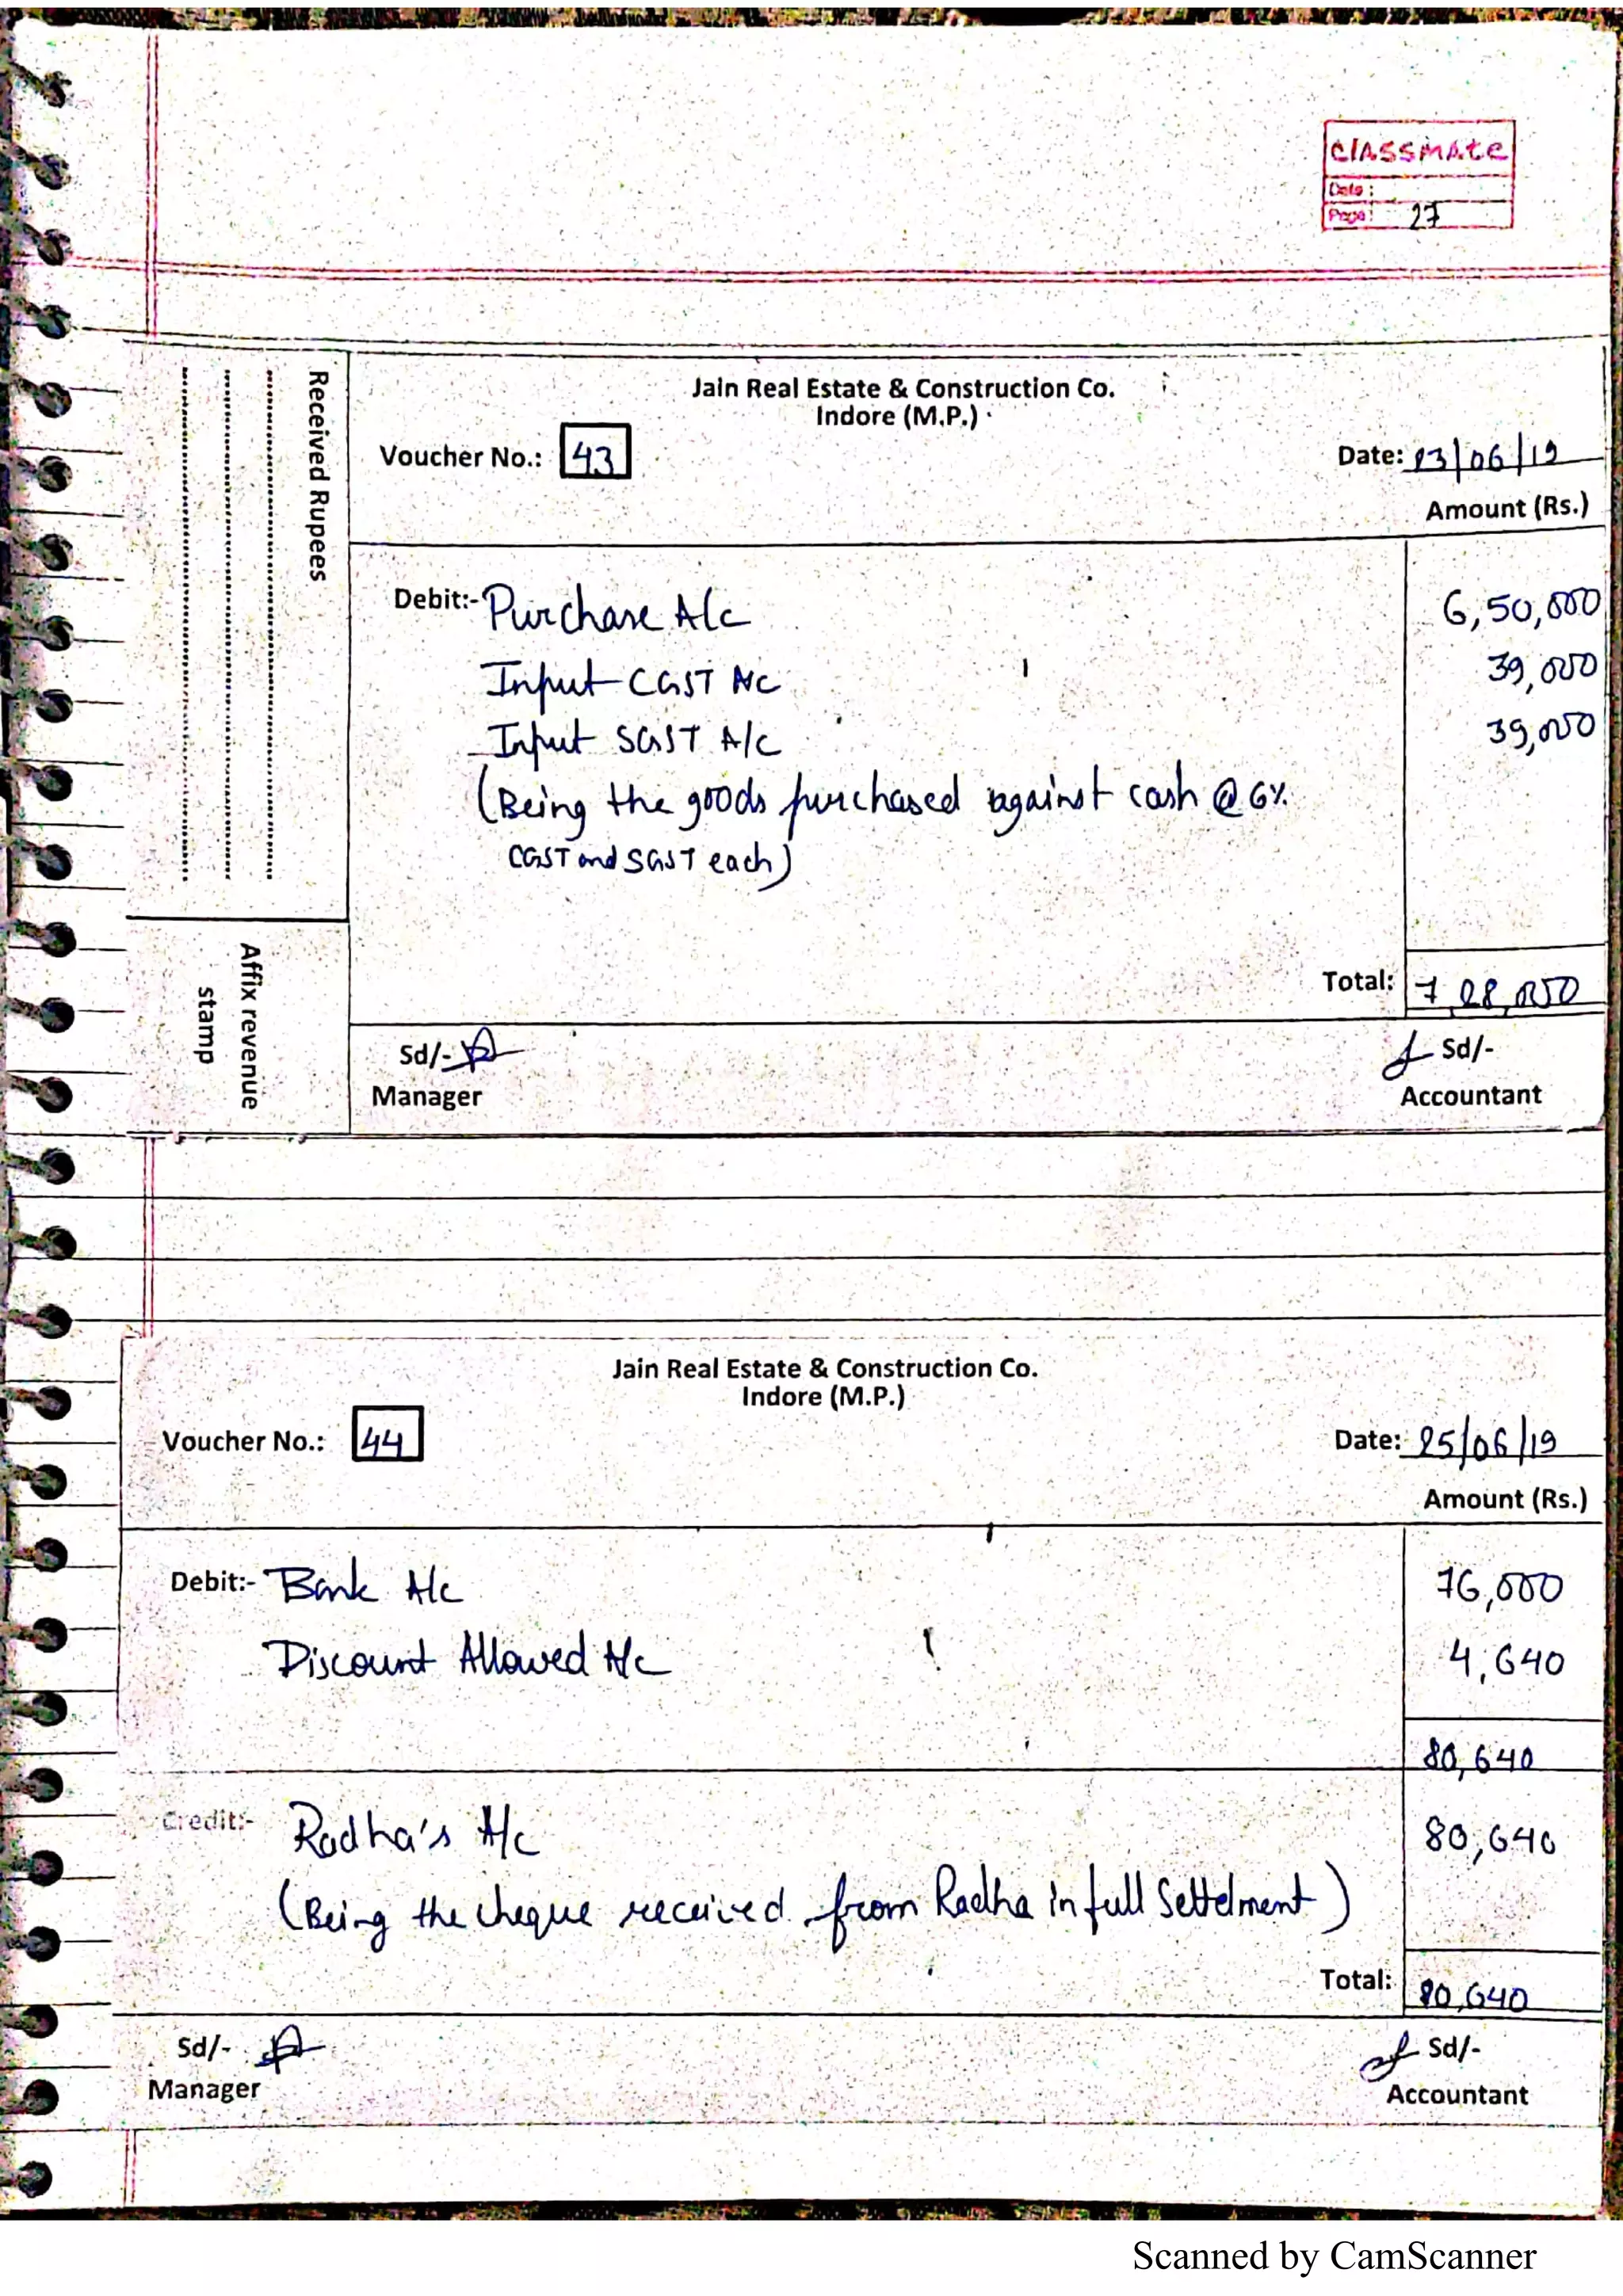 classmate
Date:
Page: 27
Jain Real Estate & Construction Co.
Indore (M.P.)
Voucher No.: 43
Date: 23/06/19
Amount (Rs.)
Received Rupees
Debit:- Purchase A/c 6,50,000
Input CGST A/c 39,000
Input SGST A/c 39,000
(Being the goods purchased against cash @ 6%
CGST and SGST each)
Total: 7,28,000
Affix revenue
stamp
Sd/- Sd/-
Manager Accountant
Jain Real Estate & Construction Co.
Indore (M.P.)
Voucher No.: 44
Date: 25/06/19
Amount (Rs.)
Debit:- Bank A/c 76,000
Discount Allowed A/c 4,640
80,640
Credit:- Radha's A/c 80,640
(Being the cheque received from Radha in full Settelment)
Total: 80,640
Sd/- Sd/-
Manager Accountant
Scanned by CamScanner